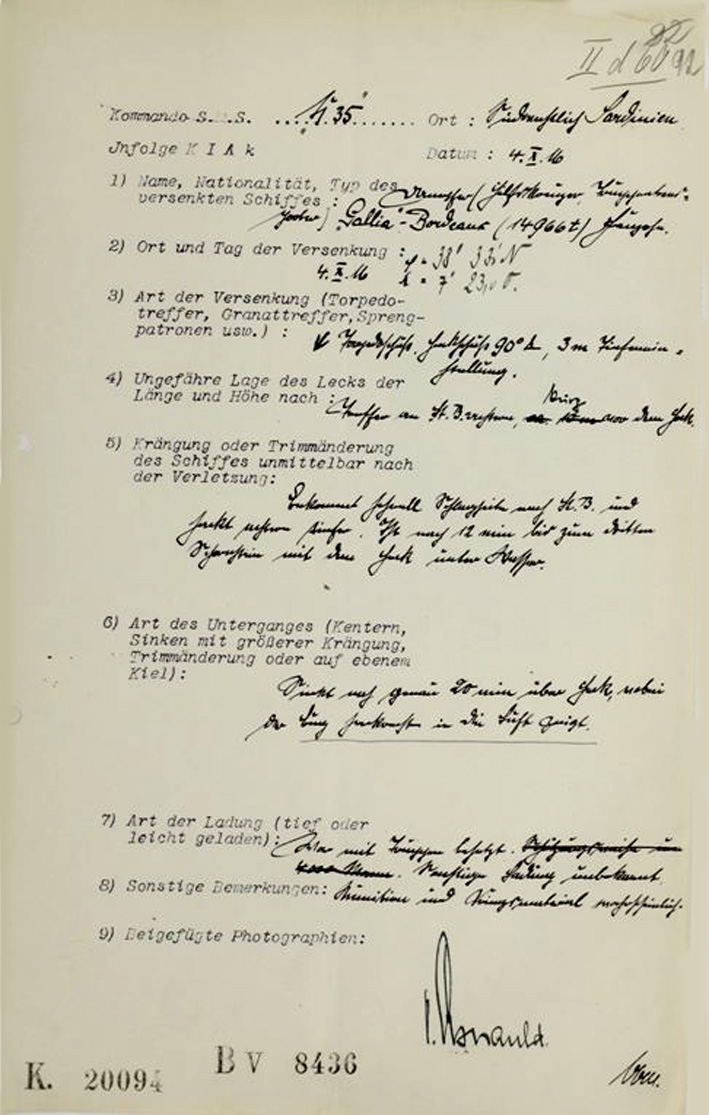 II d 6092
Kommando S.M.S. "U.35" Ort : Südwestlich Sardinien
Infolge K I A k Datum : 4.X.16
1) Name, Nationalität, Typ des
versenkten Schiffes : Dampfer (Hilfskreuzer, Truppentrans-
porter) "Gallia"-Bordeaux (14966t) Französ.
2) Ort und Tag der Versenkung : φ = 38° 33' N
4.X.16 λ = 7° O.
3) Art der Versenkung (Torpedo-
treffer, Granattreffer, Spreng-
patronen usw.) : Torpedoschuß, Heckschuß 90°, 3m Tiefenein-
stellung.
4) Ungefähre Lage des Lecks der kurz
Länge und Höhe nach : Treffer an St.B. achtern, vor dem Heck.
5) Krängung oder Trimmänderung
des Schiffes unmittelbar nach
der Verletzung:
Bekommt schnell Schlagseite nach St.B. und
sackt achtern tiefer. Ist nach 12 min bis zum dritten
Schornstein mit dem Heck unter Wasser.
6) Art des Unterganges (Kentern,
Sinken mit größerer Krängung,
Trimmänderung oder auf ebenem
Kiel):
Sinkt nach genau 20 min über Heck, wobei
der Bug senkrecht in die Luft zeigt.
7) Art der Ladung (tief oder
leicht geladen): War mit Truppen besetzt. Schätzungsweise
4000 Mann. Sonstige Ladung unbekannt.
8) Sonstige Bemerkungen: Munition und Kriegsmaterial wahrscheinlich.
9) Beigefügte Photographien:
v. Arnauld.
K. 20094 BV 8436